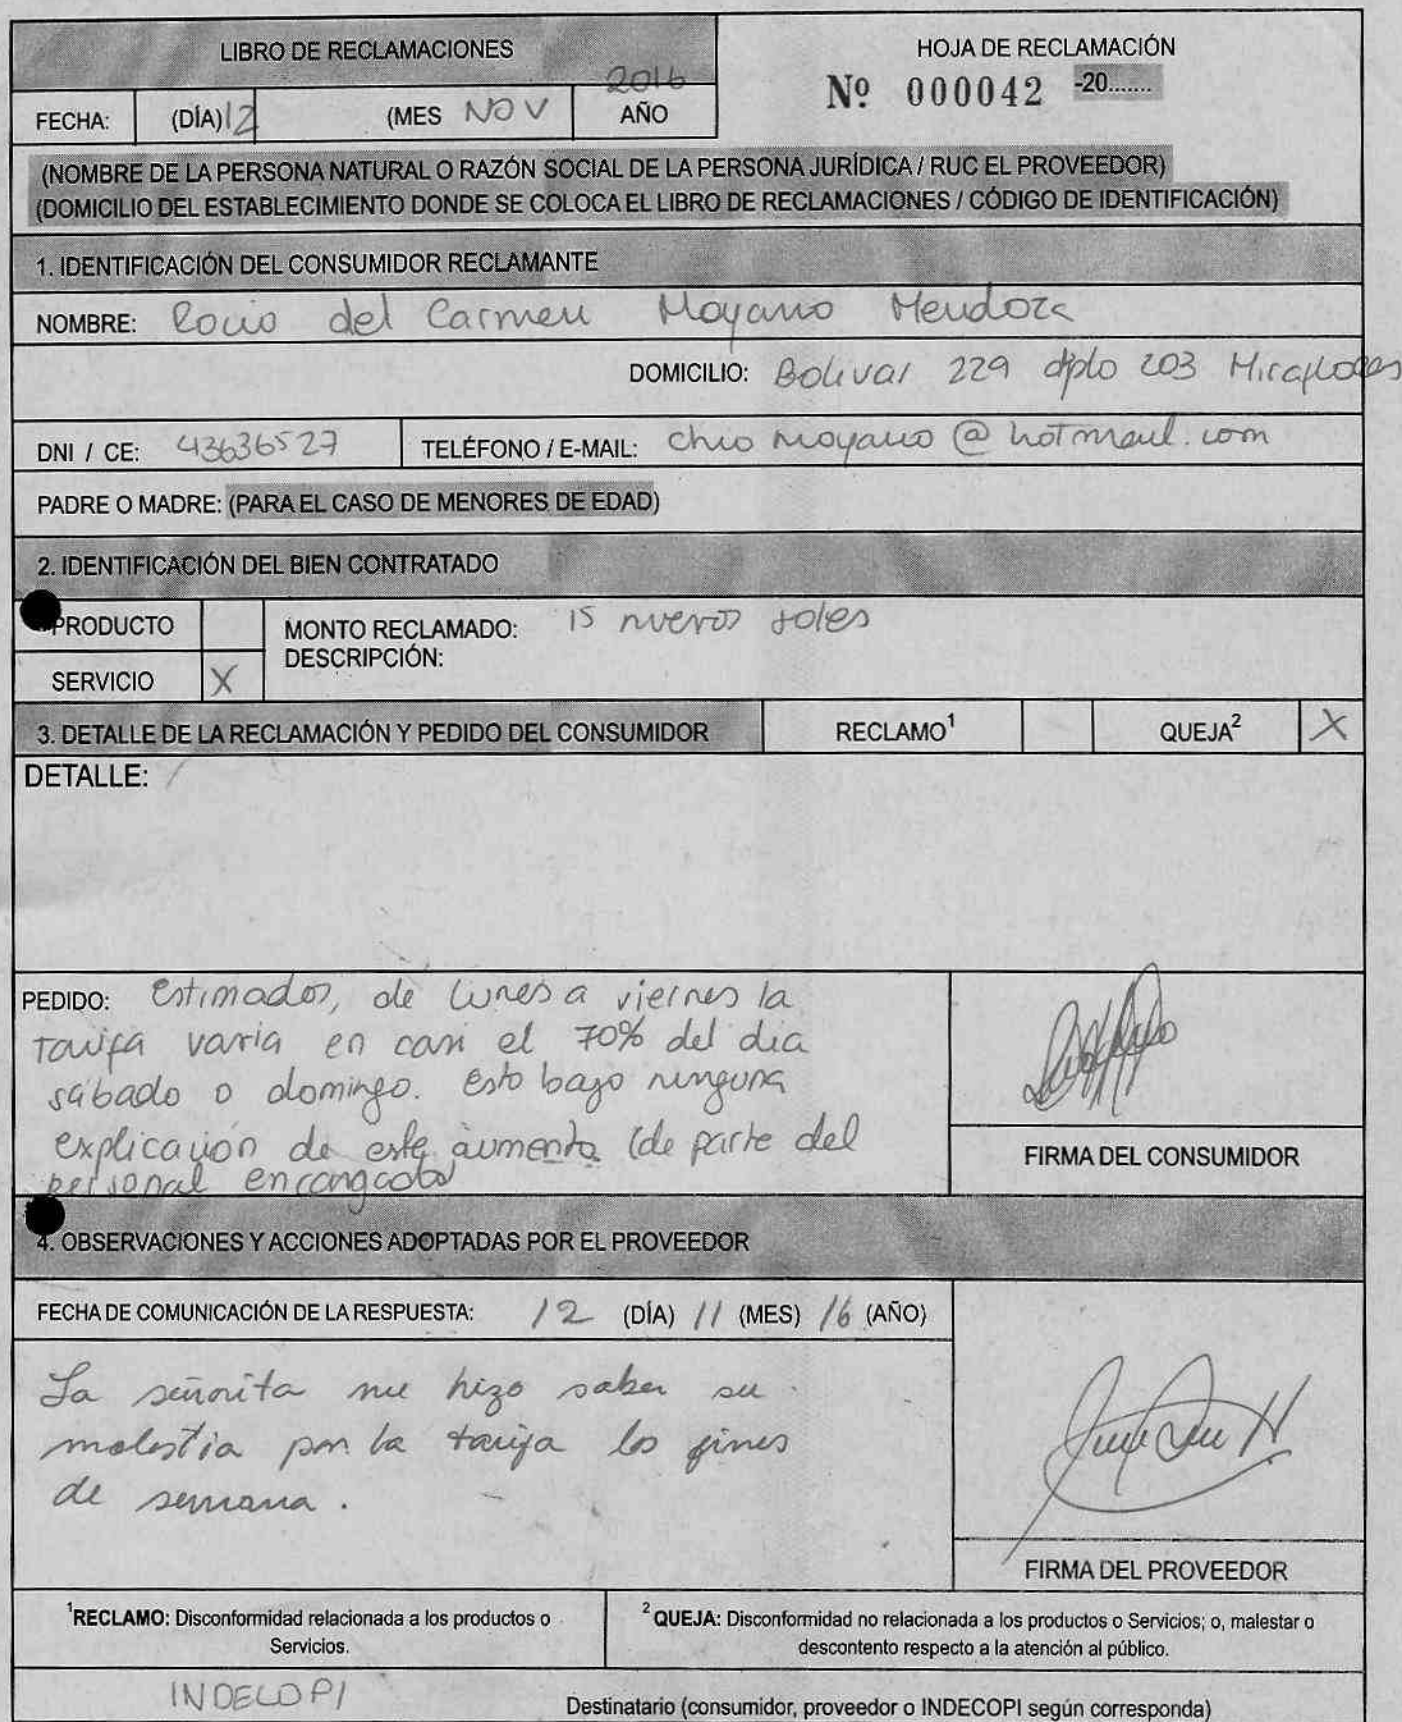 LIBRO DE RECLAMACIONES
HOJA DE RECLAMACIÓN
Nº 000042 -20.......
FECHA: (DÍA) 12 (MES NOV 2016 AÑO
(NOMBRE DE LA PERSONA NATURAL O RAZÓN SOCIAL DE LA PERSONA JURÍDICA / RUC EL PROVEEDOR)
(DOMICILIO DEL ESTABLECIMIENTO DONDE SE COLOCA EL LIBRO DE RECLAMACIONES / CÓDIGO DE IDENTIFICACIÓN)
1. IDENTIFICACIÓN DEL CONSUMIDOR RECLAMANTE
NOMBRE: Rocio del Carmen Moyano Mendoza
DOMICILIO: Bolivar 229 dpto 203 Miraflores
DNI / CE: 43636527 TELÉFONO / E-MAIL: chio moyano @ hotmail.com
PADRE O MADRE: (PARA EL CASO DE MENORES DE EDAD)
2. IDENTIFICACIÓN DEL BIEN CONTRATADO
PRODUCTO
MONTO RECLAMADO: 15 nuevos soles
DESCRIPCIÓN:
SERVICIO X
3. DETALLE DE LA RECLAMACIÓN Y PEDIDO DEL CONSUMIDOR RECLAMO¹ QUEJA² X
DETALLE:
PEDIDO: Estimados, de lunes a viernes la
tarifa varia en casi el 70% del dia
sábado o domingo. Esto bajo ninguna
explicación de este aumento (de parte del
personal encargado)
FIRMA DEL CONSUMIDOR
4. OBSERVACIONES Y ACCIONES ADOPTADAS POR EL PROVEEDOR
FECHA DE COMUNICACIÓN DE LA RESPUESTA: 12 (DÍA) 11 (MES) 16 (AÑO)
La señorita me hizo saber su
molestia por la tarifa los fines
de semana.
FIRMA DEL PROVEEDOR
¹RECLAMO: Disconformidad relacionada a los productos o
Servicios.
² QUEJA: Disconformidad no relacionada a los productos o Servicios; o, malestar o
descontento respecto a la atención al público.
INDECOPI
Destinatario (consumidor, proveedor o INDECOPI según corresponda)